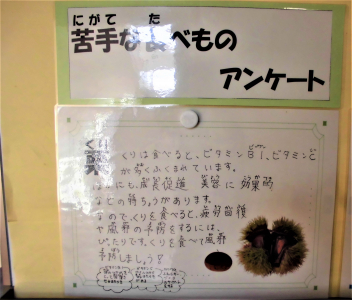 にがて た
苦手な食べもの
アンケート
くり
栗
くりは食べると、ビタミンB1、ビタミンC
が多くふくまれています。
ほかにも、成長促進 美容に 効果的
などの特ちょうがあります。
なので、くりを食べると、疲労回復
や風邪の予防をするには、
ぴったりです。くりを食べて風邪
予防しましょう!